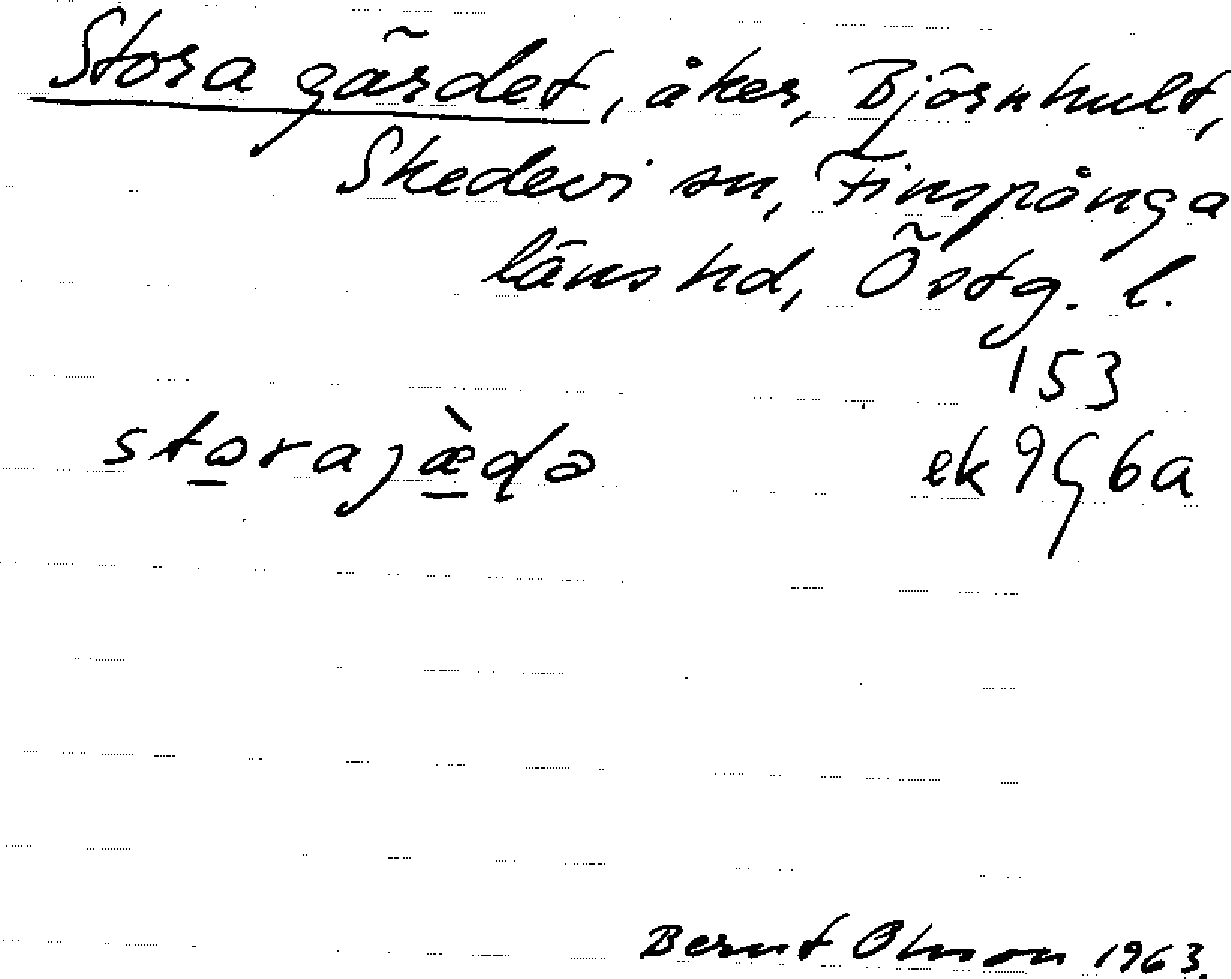 Stora gärdet, åker, Björnhult,
Skedevi sn, Finspånga
läns hd, Östg. l.
153
storajæ̀ḍə ek 9G6a
Bernt Olsson 1963.